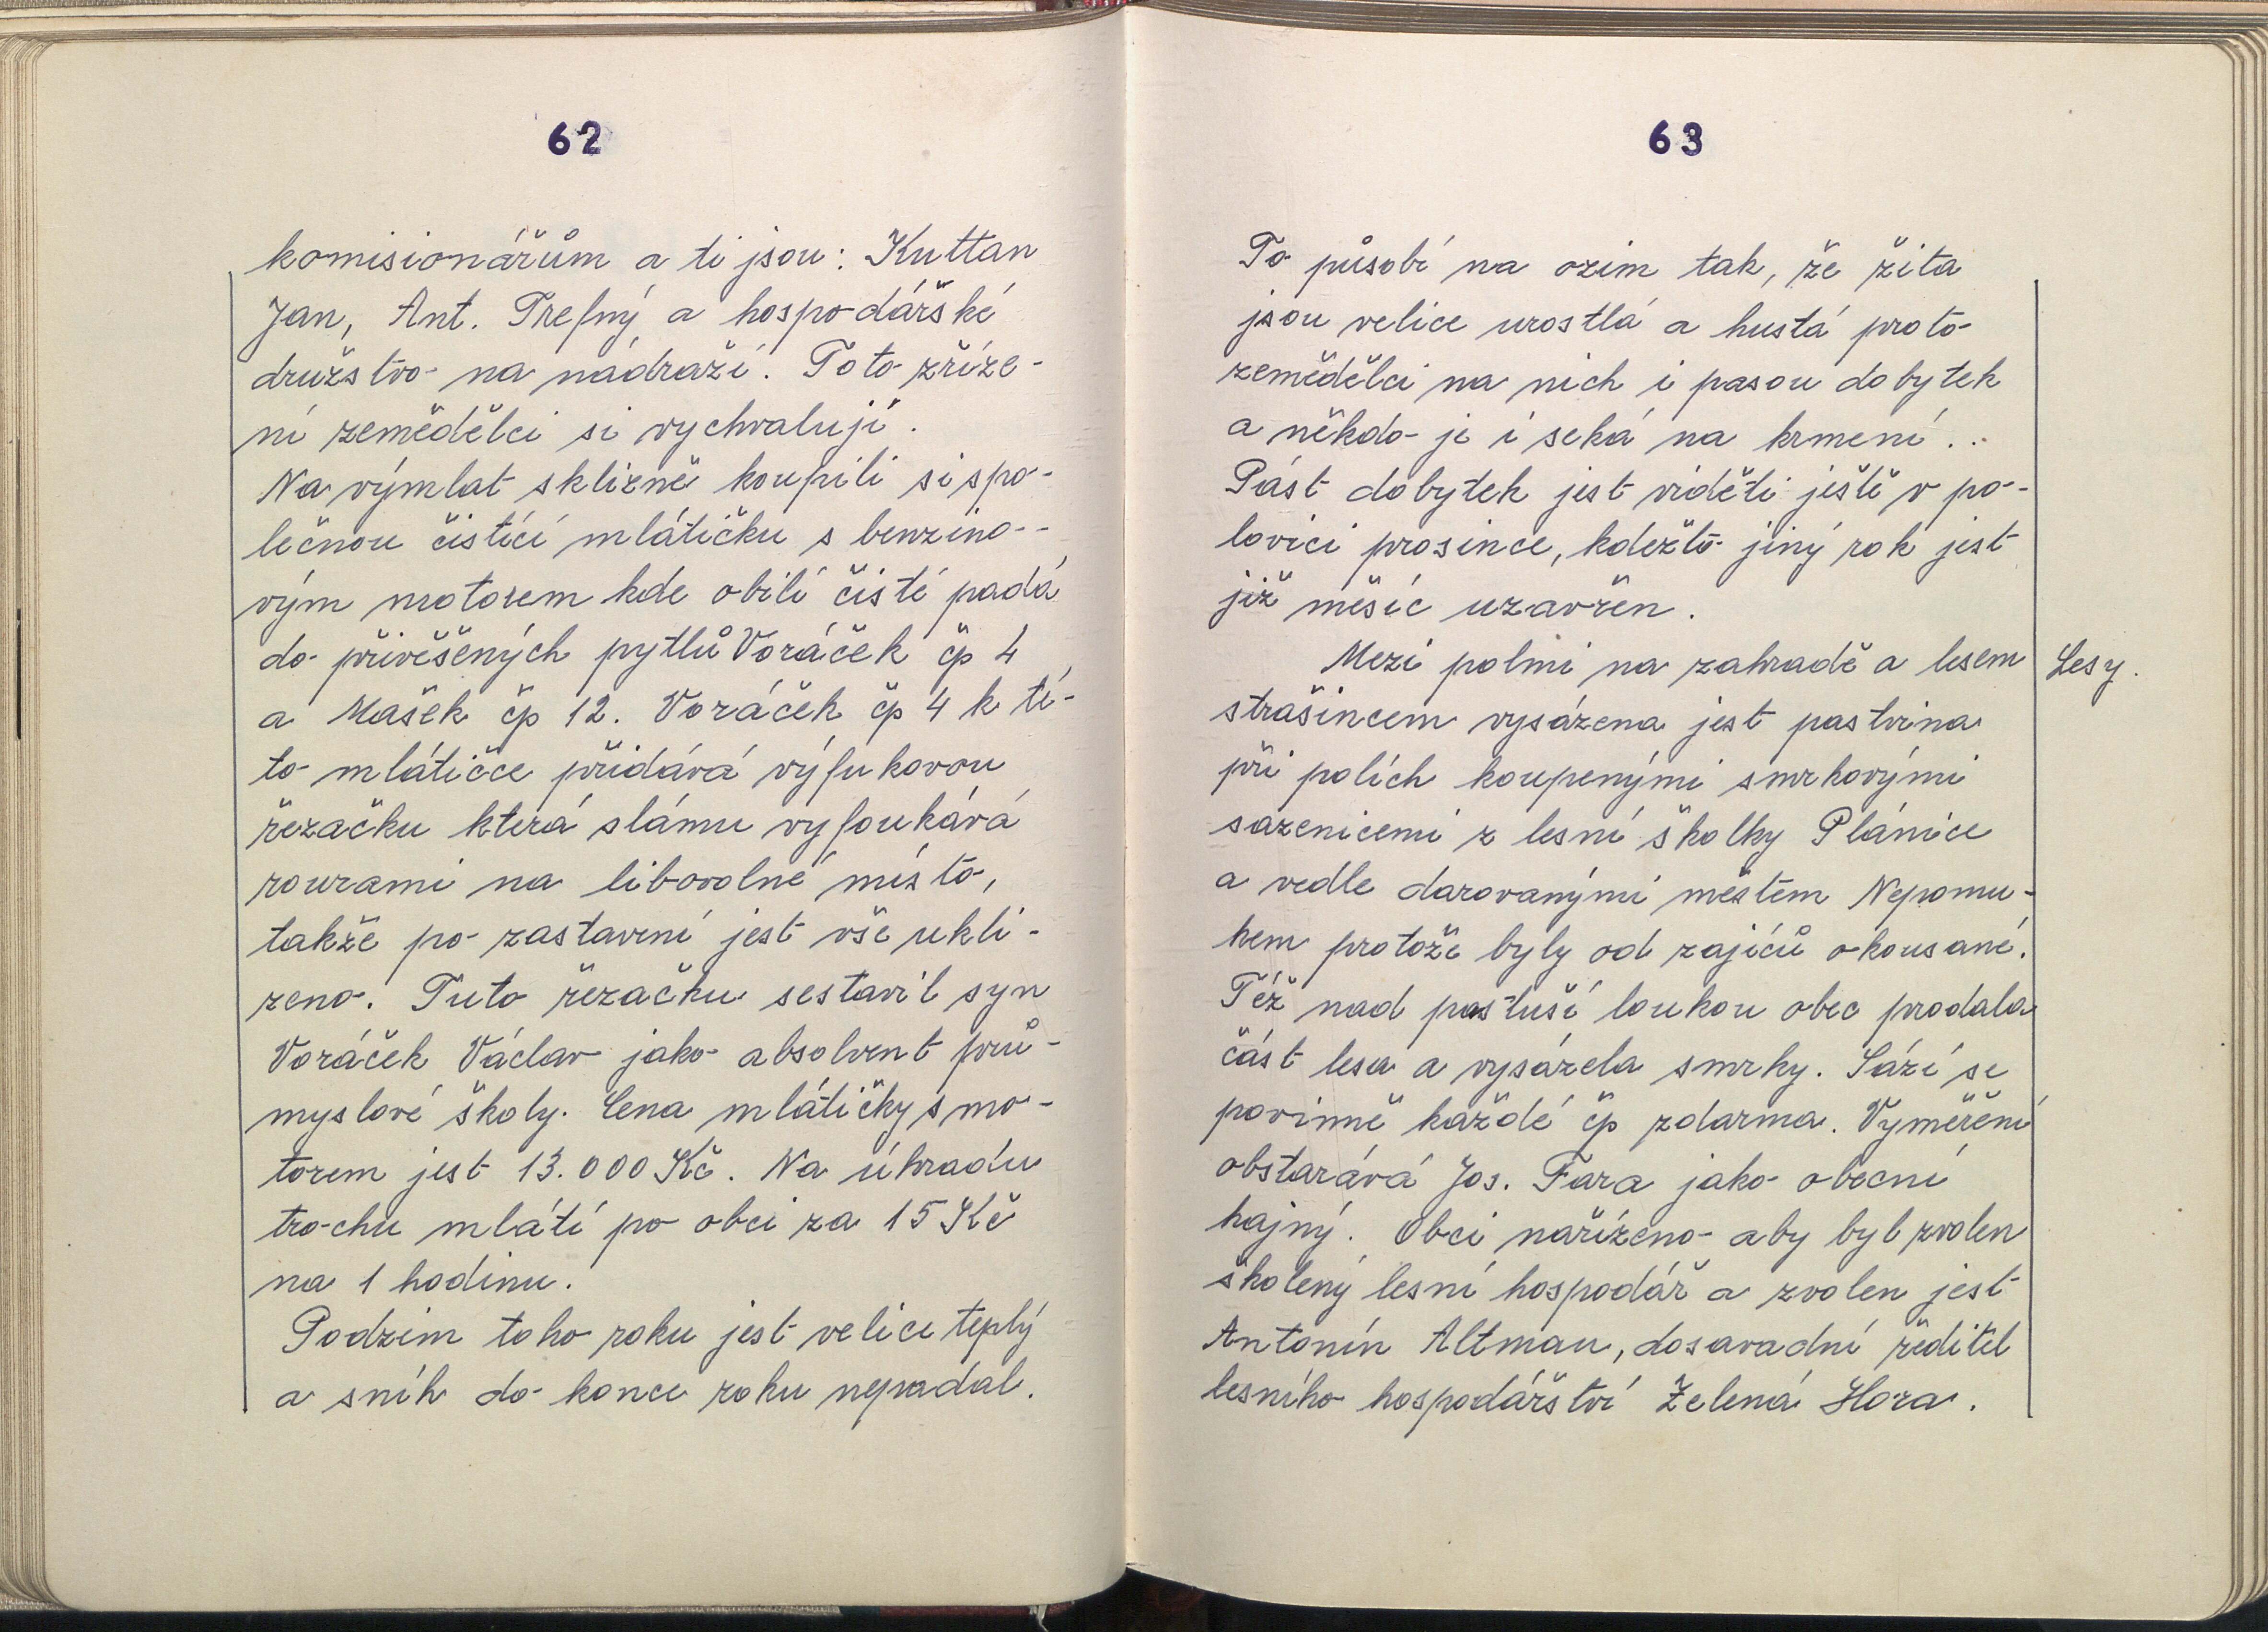 62
komisionářům a ti jsou: Kuttan
Jan, Ant. Třefný a hospodářské
družstvo na nádraží. Toto zříze-
ní zemědělci si vychvalují.
Na výmlat sklizně koupili si spo-
lečnou čistící mlátičku s benzino-
vým motorem kde obilí čisté padá
do přivěšených pytlů Voráček čp 4
a Mašek čp 12. Voráček čp 4 k té-
to mlátičce přidává výfukovou
řezačku která slámu vyfoukává
rourami na libovolné místo,
takže po zastavení jest vše ukli-
zeno. Tuto řezačku sestavil syn
Voráček Václav jako absolvent prů-
myslové školy. Cena mlátičky s mo-
torem jest 13.000 Kč. Na úhradu
trochu mlátí po obci za 15 Kč
na 1 hodinu.
Podzim toho roku jest velice teplý
a sníh do konce roku nepadal.
63
To působí na ozim tak, že žita
jsou velice urostlá a hustá proto
zemědělci na nich i pasou dobytek
a někdo je i seká na krmení..
Pást dobytek jest viděti ještě v po-
lovici prosince, kdežto jiný rok jest
již měsíc uzavřen.
Mezi polmi na zahradě a lesem
Lesy.
strašincem vysázena jest pastvina
při polích koupenými smrkovými
sazenicemi z lesní školky Plánice
a vedle darovanými městem Nepomu-
kem protože byly od zajíců okousané.
Též nad pastuší loukou obec prodala
část lesa a vysázela smrky. Sází se
povinně každé čp zdarma. Vyměření
obstarává Jos. Fara jako obecní
hajný. Obci nařízeno aby byl zvolen
školený lesní hospodář a zvolen jest
Antonín Altman, dosavadní ředitel
lesního hospodářství Zelená Hora.